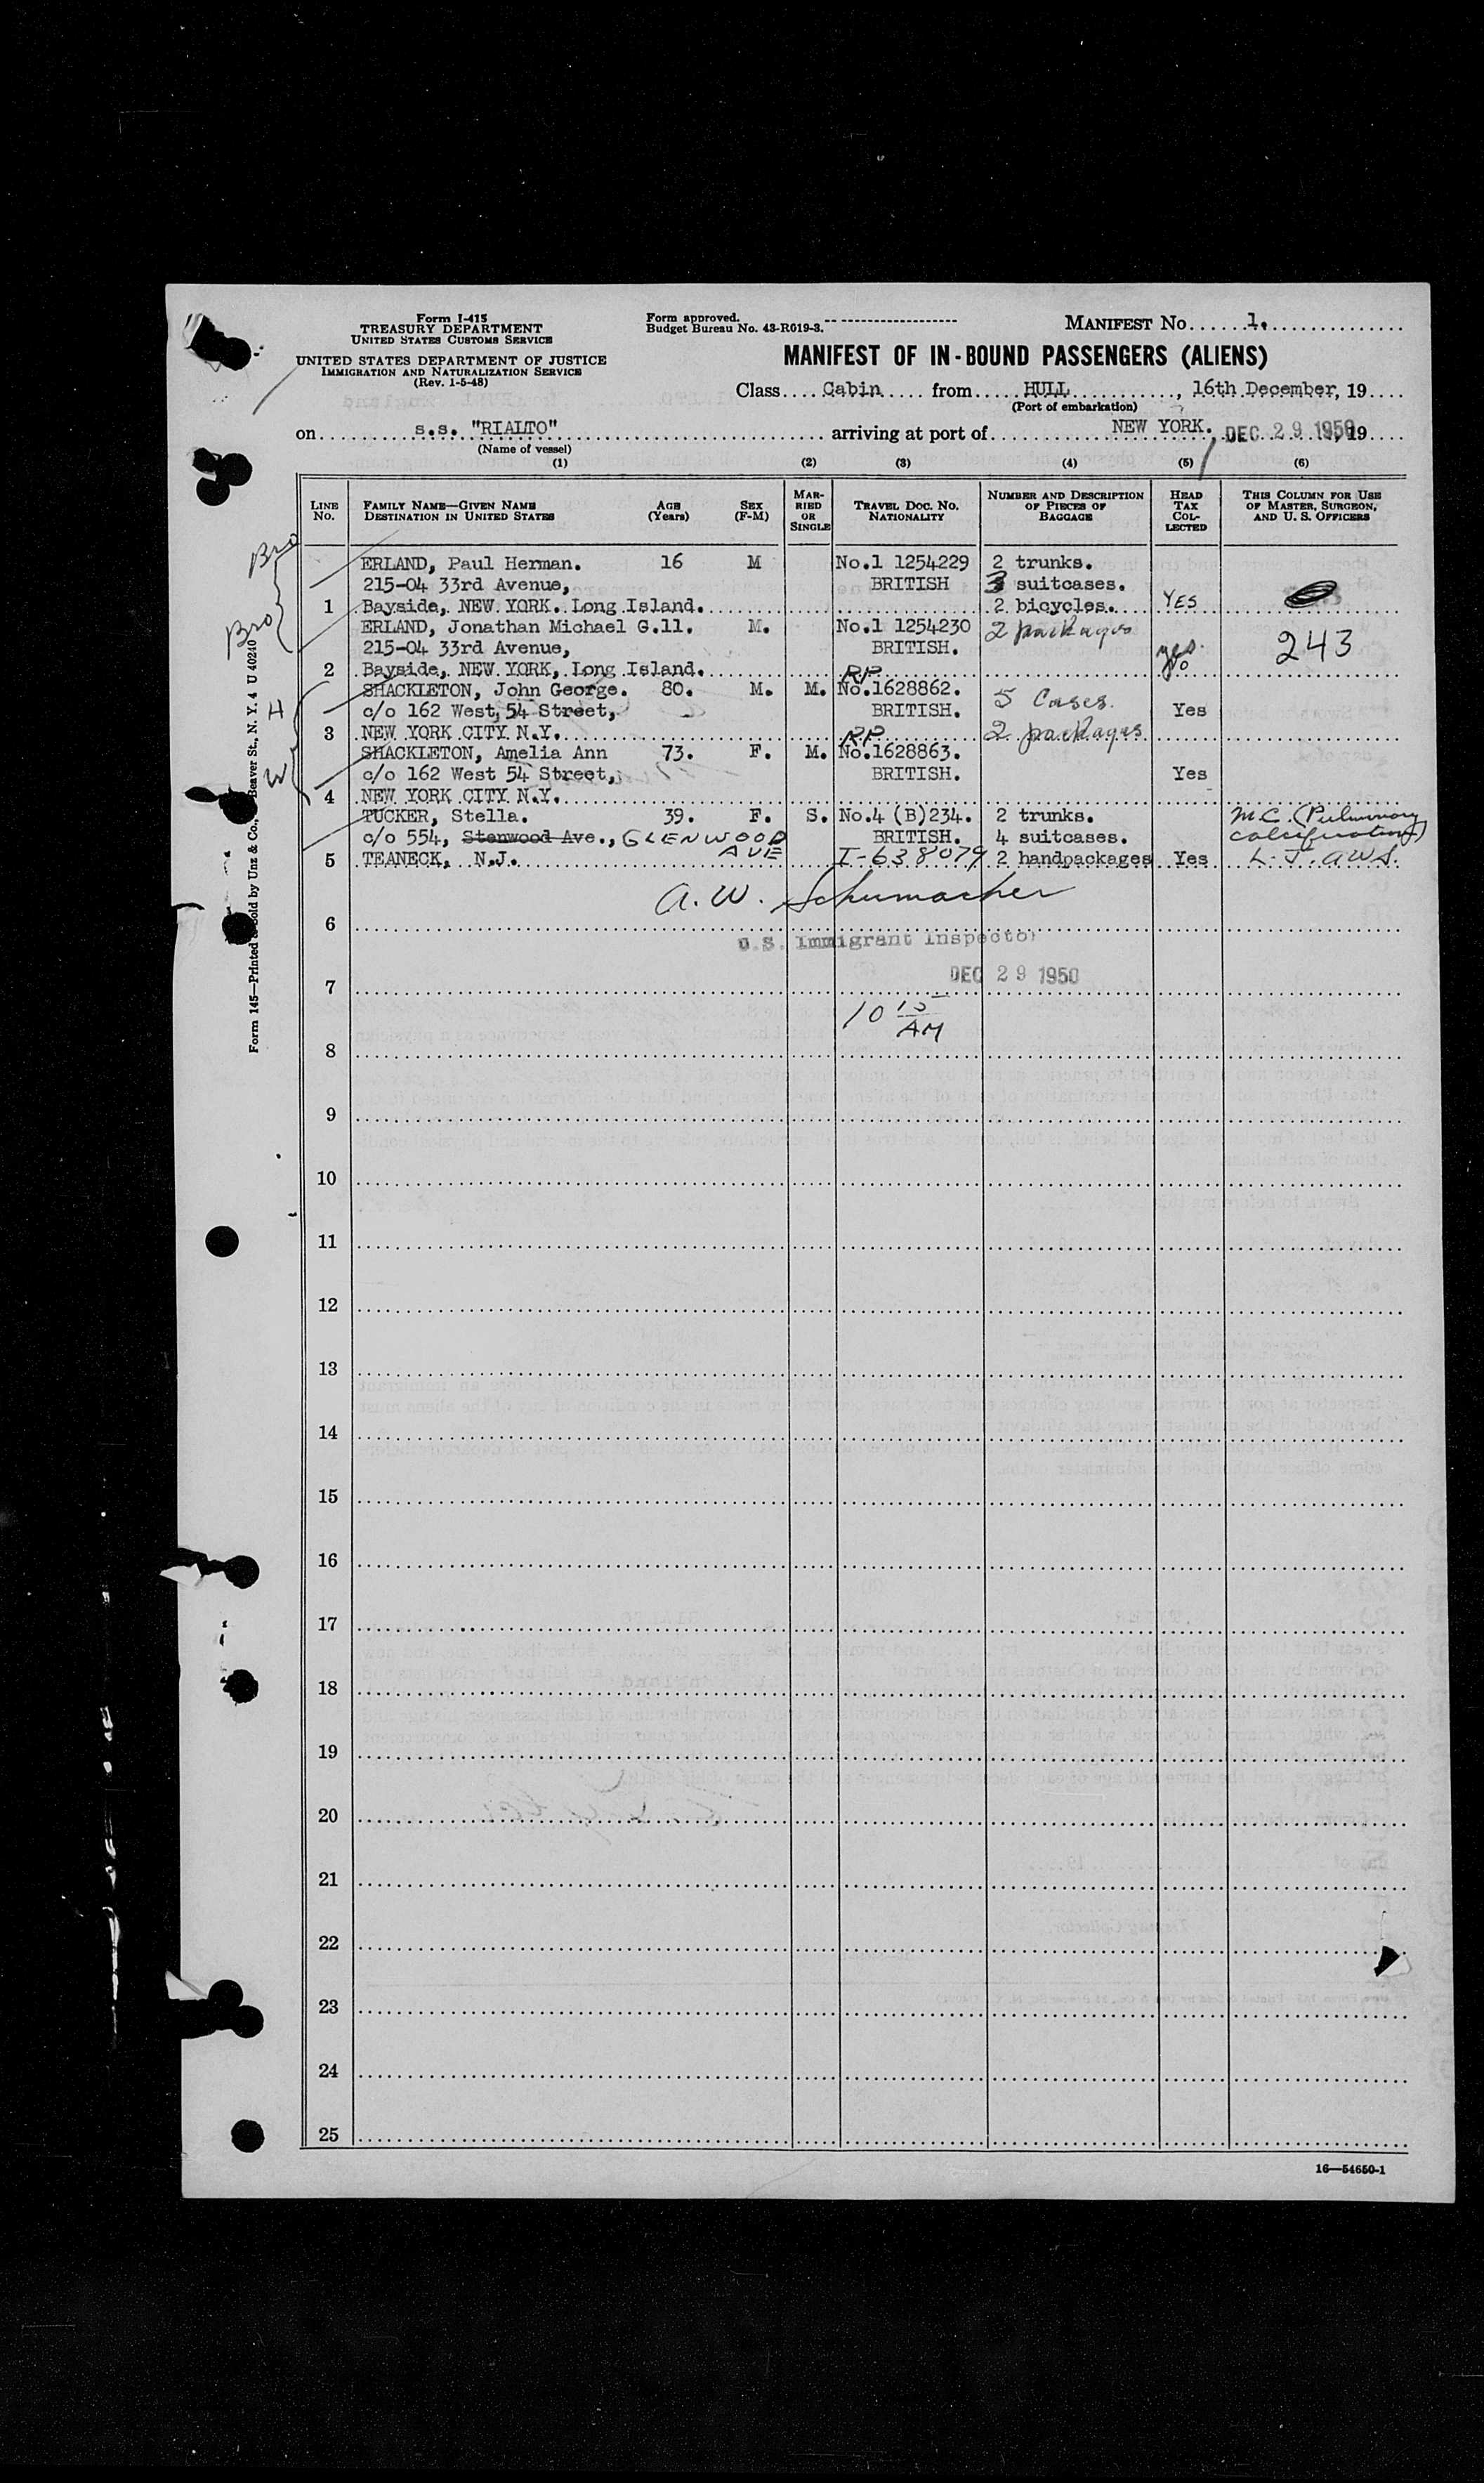 Form I-415
TREASURY DEPARTMENT
UNITED STATES CUSTOMS SERVICE
UNITED STATES DEPARTMENT OF JUSTICE
IMMIGRATION AND NATURALIZATION SERVICE
(Rev. 1-5-48)
Form approved.
Budget Bureau No. 43-R019-3.
MANIFEST NO. 1.
MANIFEST OF IN-BOUND PASSENGERS (ALIENS)
Class Cabin from HULL, 16th December, 19
(Port of embarkation)
on s.s. "RIALTO" arriving at port of NEW YORK. DEC 29 1950, 19
(Name of vessel)
(1) (2) (3) (4) (5) (6)
LINE NO. FAMILY NAME—GIVEN NAME DESTINATION IN UNITED STATES AGE (Years) SEX (F-M) MARRIED OR SINGLE TRAVEL DOC. NO. NATIONALITY NUMBER AND DESCRIPTION OF PIECES OF BAGGAGE HEAD TAX COLLECTED THIS COLUMN FOR USE OF MASTER, SURGEON, AND U. S. OFFICERS
Bro
ERLAND, Paul Herman. 16 M No.1 1254229 2 trunks.
215-04 33rd Avenue, BRITISH 3 suitcases.
1 Bayside, NEW YORK. Long Island. 2 bicycles. YES
Bro
ERLAND, Jonathan Michael G.11. M. No.1 1254230 2 packages
215-04 33rd Avenue, BRITISH. yes 243
2 Bayside, NEW YORK, Long Island. No
RP
SHACKLETON, John George. 80. M. M. No.1628862. 5 Cases
H c/o 162 West, 54 Street, BRITISH. Yes
3 NEW YORK CITY N.Y. 2 packages
RP
SHACKLETON, Amelia Ann 73. F. M. No.1628863.
W c/o 162 West 54 Street, BRITISH. Yes
4 NEW YORK CITY N.Y.
TUCKER, Stella. 39. F. S. No.4 (B)234. 2 trunks. M.C. (Pulmonary
c/o 554, Stenwood Ave., GLENWOOD AVE BRITISH. 4 suitcases. calcification)
5 TEANECK, N.J. I-638079 2 handpackages Yes L.J. AWS.
A. W. Schumacher
6
U.S. Immigrant Inspector
DEC 29 1950
7
10 15 AM
8
9
10
11
12
13
14
15
16
17
18
19
20
21
22
23
24
25
16—54650-1
Form 145—Printed Sold by Unz & Co., Beaver St., N. Y. 4 U 40240